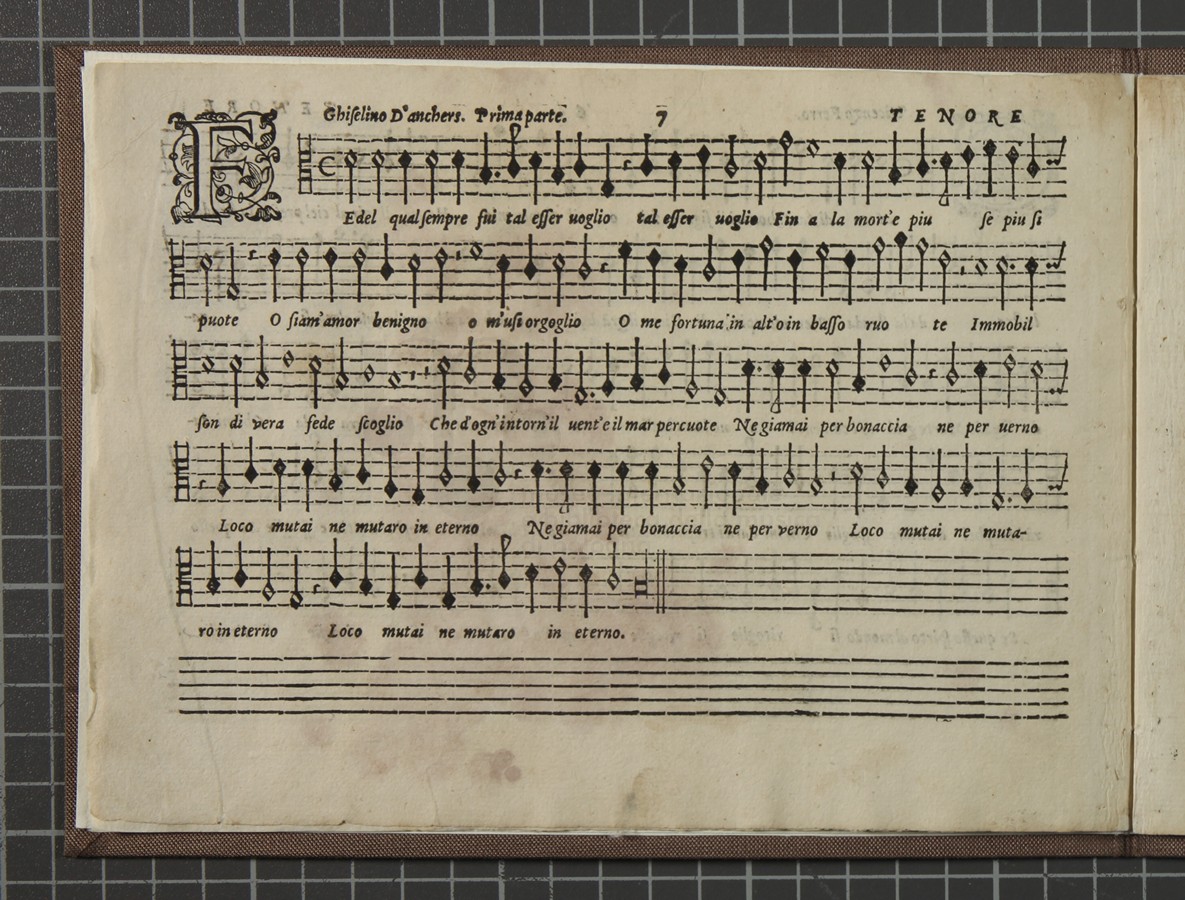 Ghiſelino D'anchers. Prima parte. 7 TENORE
FEdel qual ſempre fui tal eſſer uoglio tal eſſer uoglio Fin a la mort'e piu ſe piu ſi
puote O ſiam'amor benigno o m'uſi orgoglio O me fortuna in alt'o in baſſo ruo te Immobil
ſon di vera fede ſcoglio Che d'ogn'intorn'il uent'e il mar percuote Ne giamai per bonaccia ne per uerno
Loco mutai ne mutaro in eterno Ne giamai per bonaccia ne per verno Loco mutai ne muta-
ro in eterno Loco mutai ne mutaro in eterno.